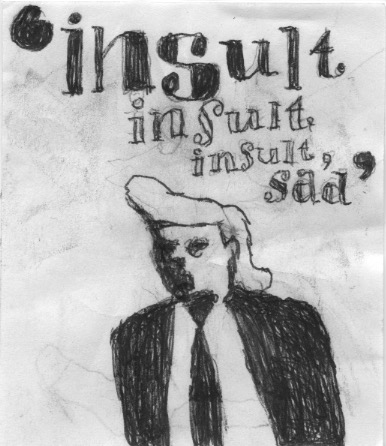 ‘insult
insult,
insult,
sad’